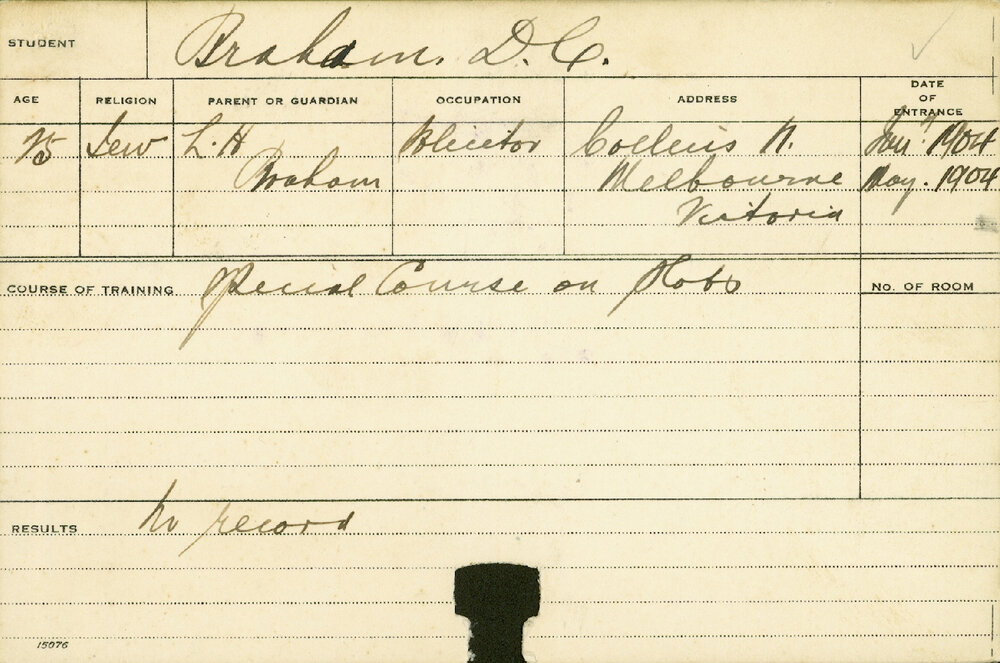 STUDENT Braham, D. C.
AGE RELIGION PARENT OR GUARDIAN OCCUPATION ADDRESS DATE OF ENTRANCE
Jew L. H Solicitor Collins St. Jan. 1904
Braham Melbourne May. 1904
Victoria
COURSE OF TRAINING Special Course on
No. OF ROOM
RESULTS No record
15076